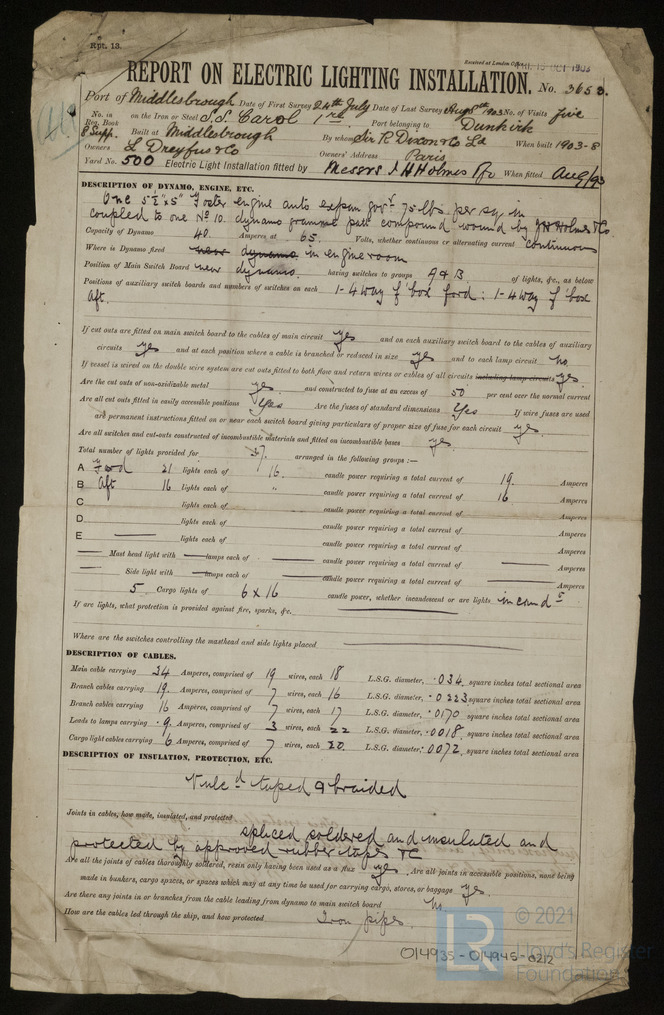 Rpt. 13.
Received at London Office 15 OCT 1903
REPORT ON ELECTRIC LIGHTING INSTALLATION. No. 3653.
Port of Middlesbrough Date of First Survey 24th July Date of Last Survey Aug 8th 1903 No. of Visits five
No. in Reg. Book 8 Supp. on the Iron or Steel S.S. Carol 1re Port belonging to Dunkirk
Built at Middlesbrough By whom Sir R Dixon & Co Ld When built 1903-8
Owners L Dreyfus & Co Owners' Address Paris
Yard No. 500 Electric Light Installation fitted by Messrs J H Holmes & Co When fitted Aug/03
DESCRIPTION OF DYNAMO, ENGINE, ETC.
One 5½" x 5" Foster engine auto expan gov 75 lbs. per sq. in
coupled to one No 10. dynamo gramme patt compound wound by JH Holmes & Co.
Capacity of Dynamo 40. Amperes at 65. Volts, whether continuous or alternating current continuous
Where is Dynamo fixed near dynamo in engine room
Position of Main Switch Board near dynamo. having switches to groups A & B of lights, &c., as below
Positions of auxiliary switch boards and numbers of switches on each 1-4 way f box ford: 1-4 way f box
Aft.
If cut outs are fitted on main switch board to the cables of main circuit yes and on each auxiliary switch board to the cables of auxiliary
circuits yes and at each position where a cable is branched or reduced in size yes and to each lamp circuit no
If vessel is wired on the double wire system are cut outs fitted to both flow and return wires or cables of all circuits including lamp circuits yes.
Are the cut outs of non-oxidizable metal yes and constructed to fuse at an excess of 50 per cent over the normal current
Are all cut outs fitted in easily accessible positions Yes Are the fuses of standard dimensions Yes If wire fuses are used
are permanent instructions fitted on or near each switch board giving particulars of proper size of fuse for each circuit yes.
Are all switches and cut-outs constructed of incombustible materials and fitted on incombustible bases yes.
Total number of lights provided for 37. arranged in the following groups :—
A Ford 21 lights each of 16. candle power requiring a total current of 19. Amperes
B Aft 16 lights each of " candle power requiring a total current of 16 Amperes
C lights each of candle power requiring a total current of Amperes
D lights each of candle power requiring a total current of Amperes
E — lights each of candle power requiring a total current of Amperes
— Mast head light with — lamps each of — candle power requiring a total current of — Amperes
— Side light with — lamps each of — candle power requiring a total current of — Amperes
5. Cargo lights of 6 x 16 candle power, whether incandescent or arc lights incands
If arc lights, what protection is provided against fire, sparks, &c. —
Where are the switches controlling the masthead and side lights placed —
DESCRIPTION OF CABLES.
Main cable carrying 34 Amperes, comprised of 19 wires, each 18 L.S.G. diameter, .034. square inches total sectional area
Branch cables carrying 19. Amperes, comprised of 7 wires, each 16 L.S.G. diameter, .0223 square inches total sectional area
Branch cables carrying 16 Amperes, comprised of 7 wires, each 17 L.S.G. diameter, .0170 square inches total sectional area
Leads to lamps carrying .9. Amperes, comprised of 3 wires, each 22 L.S.G. diameter, .0018. square inches total sectional area
Cargo light cables carrying 6 Amperes, comprised of 7 wires, each 20. L.S.G. diameter, .0072 square inches total sectional area
DESCRIPTION OF INSULATION, PROTECTION, ETC.
Vulcd taped & braided
Joints in cables, how made, insulated, and protected
spliced soldered and insulated and
protected by approved rubber tapes &c
Are all the joints of cables thoroughly soldered, resin only having been used as a flux yes. Are all joints in accessible positions, none being
made in bunkers, cargo spaces, or spaces which may at any time be used for carrying cargo, stores, or baggage yes.
Are there any joints in or branches from the cable leading from dynamo to main switch board no
How are the cables led through the ship, and how protected Iron pipes.
014935-014945-0212
LR © 2021
Lloyd's Register
Foundation